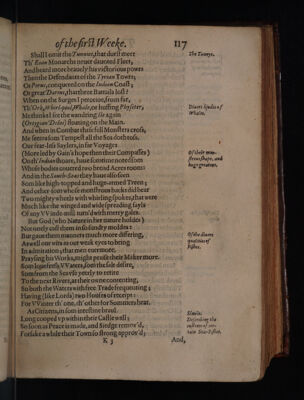 of the first Weeke. 117
Shall I omit the Tunnies, that durst meet
Th' Eoan Monarchs neuer daunted Fleet,
And beard more brauely his victorious powrs
Than the Defendants of the Tyrian Towrs;
Or Porus, conquered on the Indian Coast;
Or great Darius, that three Battails lost?
When on the Surges I perceiue, from far,
Th' Ork, Whirl-pool, Whale, or huffing Physeter,
Me thinks I see the wandring Ile again
(Ortygian Delos) floating on the Main.
And when in Combat these fell Monsters cross,
Me seems som Tempest all the Seas doth toss.
Our fear-less Saylers, in far Voyages
(More led by Gain's hope then their Compasses)
On th' Indian shoare, haue somtime noted som
Whose bodies couered two broad Acres room:
And in the South-Sea they haue also seen
Som like high-topped and huge-armed Treen;
And other som whose monstrous backs did bear
Two mighty wheels with whirling spokes, that were
Much like the winged and wide spreading sayls
Of any Winde-mill turn'd with merry gales.
But God (who Nature in her nature holds)
Not onely cast them in so sundry moulds:
But gaue them manners much more differing,
As well our wits as our weak eyes to bring
In admiration; that men euermore,
Praysing his Works, might prayse their Maker more.
Som loue fresh Waters, som the salt desire,
Som from the Sea vse yeerly to retire
To the next Riuers, at their owne contenting,
So both the Waters with free Trade frequenting;
Hauing (like Lords) two Houses of receipt:
For Winter th' one, th' other for Summers heat.
As Citizens, in som intestine braul,
Long cooped vp within their Castle wall;
So soon as Peace is made, and Siedge remov'd,
Forsake a while their Town so strong approv'd;
K 3 And,
The Tunnies.
Diuers kindes of
Whales.
Of their mon-
strous shape, and
huge greatnes.
Of the diuers
qualities of
Fishes.
Simile: